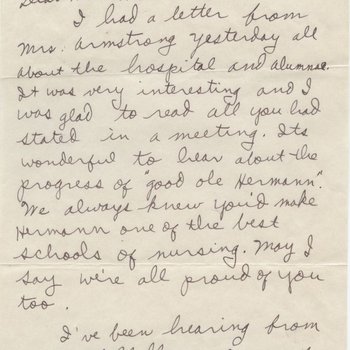 Dear
I had a letter from
Mrs. Armstrong yesterday all
about the hospital and alumnae.
It was very interesting and I
was glad to read all you had
stated in a meeting. Its
wonderful to hear about the
progress of "good ole Hermann".
We always knew you'd make
Hermann one of the best
schools of nursing. May I
say we're all proud of you
too.
I've been hearing from